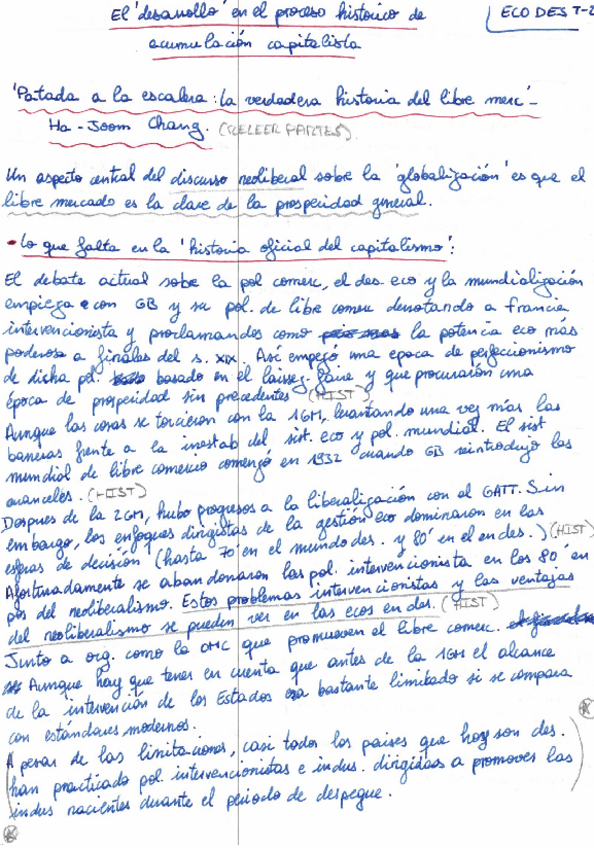 El 'desarrollo' en el proceso histórico de
acumulación capitalista
ECO DES T-2
'Patada a la escalera: la verdadera historia del libre merc' -
Ha-Joom Chang. (RELEER PARTES)
Un aspecto central del discurso neoliberal sobre la 'globalización' es que el
libre mercado es la clave de la prosperidad general.
• lo que falta en la 'historia oficial del capitalismo':
El debate actual sobre la pol comerc, el des. eco y la mundialización
empieza con GB y su pol. de libre comerc derrotando a Francia
intervencionista y proclamandos como la potencia eco más
poderosa a finales del s. XIX. Así empezó una epoca de perfeccionismo
de dicha pol. basado en el laissez-faire y que procuraron una
época de prosperidad sin precedentes (HIST)
Aunque las cosas se torcieron con la 1GM, levantando una vez más las
barreras frente a la inestab del sist. eco y pol. mundial. El sist
mundial de libre comercio comenzó en 1932 cuando GB reintrodujo los
aranceles. (HIST)
Despues de la 2GM, hubo progresos a la liberalización con el GATT. Sin
embargo, los enfoques dirigistas de la gestión eco dominaron en las
esferas de decisión (hasta 70' en el mundo des. y 80' en el en des.) (HIST)
Afortunadamente se abandonaron las pol. intervencionista en los 80' en
pos del neoliberalismo. Estos problemas intervencionistas y las ventajas
del neoliberalismo se pueden ver en las ecos en des. (HIST)
Junto a org. como la OMC que promueven el libre comerc.
Aunque hay que tener en cuenta que antes de la 1GM el alcance
de la intervención de los Estados era bastante limitado si se compara
con estándares modernos.
A pesar de las limitaciones, casi todos los paises que hoy son des.
han practicado pol. intervencionistas e indus. dirigidas a promover las
indus nacientes durante el periodo de despegue.